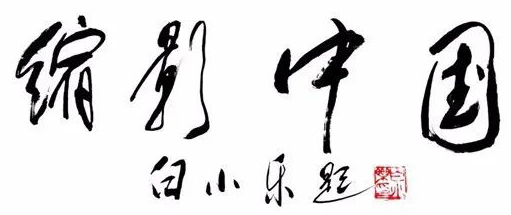 缩影中国
白小乐题